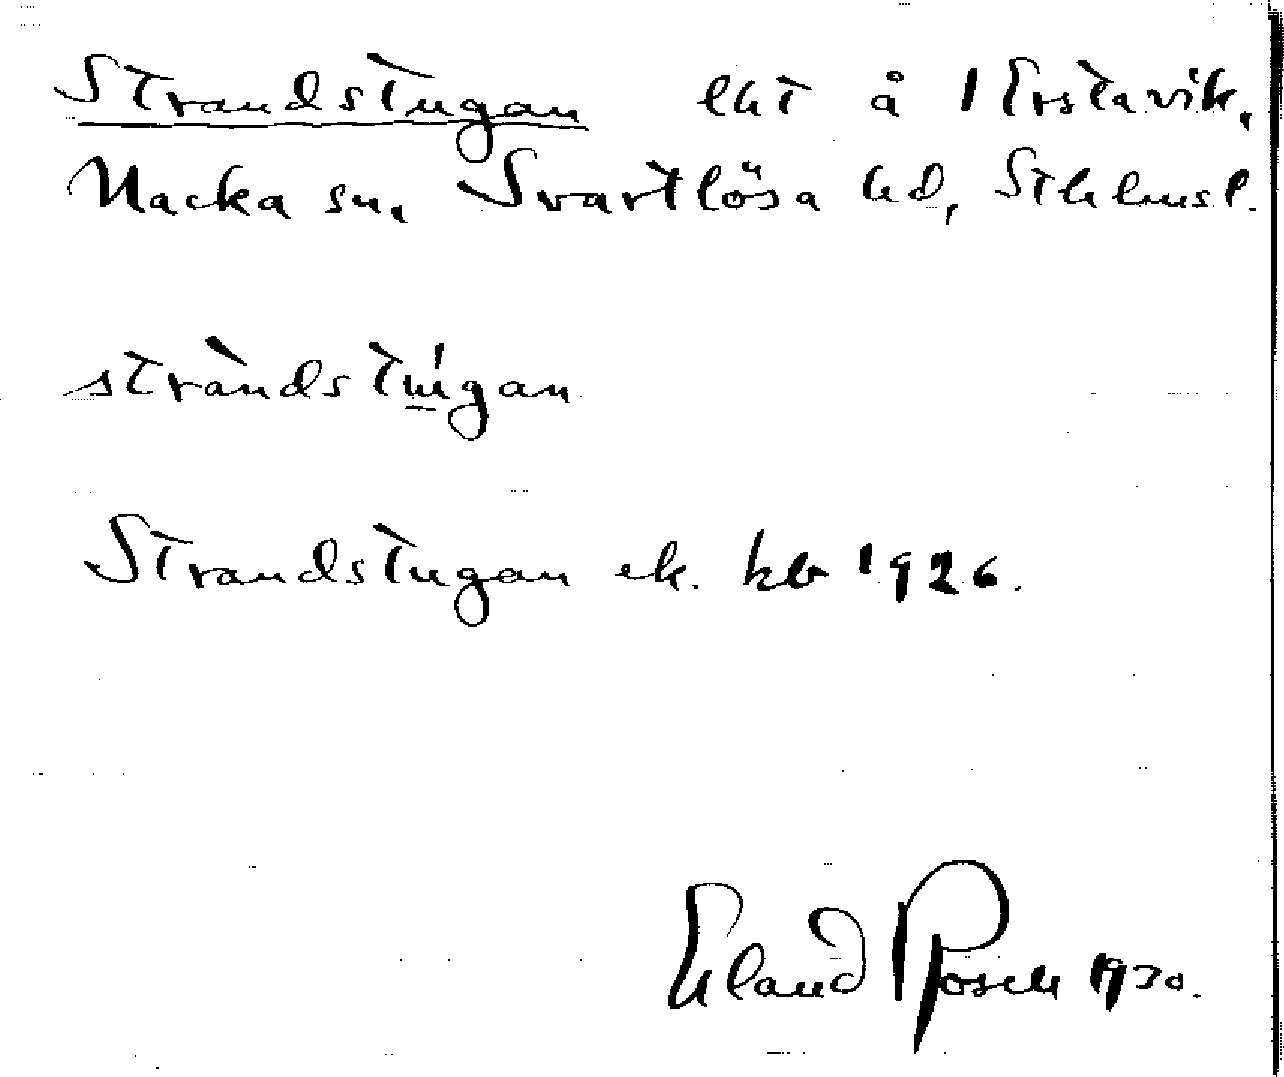 Strandstugan lht å 1 Erstavik,
Nacka sn, Svartlösa hd, Sthlmsl.
stràndstúgan
Strandstugan ek. kb 1926.
Erland Rosell 1930.